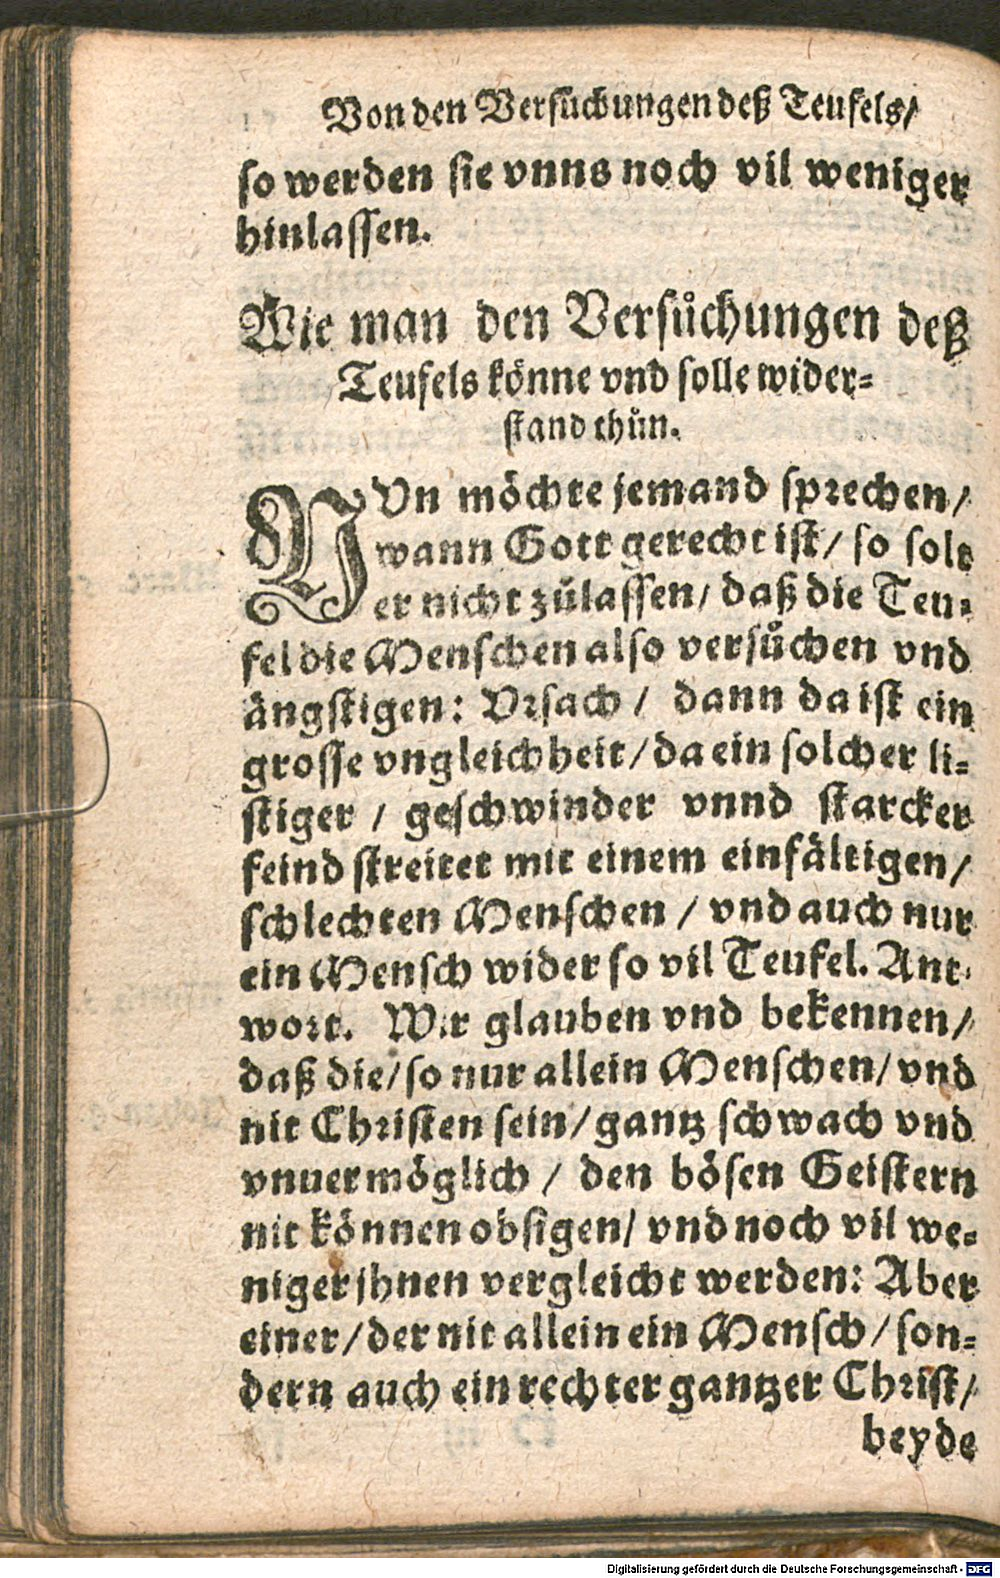 Von den Versuͤchungen deß Teufels/
so werden sie vnns noch vil weniger
hinlassen.
Wie man den Versuͤchungen deß
Teufels könne vnd solle wider=
stand thůn.
NVn möchte jemand sprechen/
wann Gott gerecht ist/ so solt
er nicht zůlassen/ daß die Teu=
fel die Menschen also versuͤchen vnd
ängstigen: Vrsach/ dann da ist ein
grosse vngleichheit/ da ein solcher li=
stiger / geschwinder vnnd starcker
feind streitet mit einem einfältigen/
schlechten Menschen / vnd auch nur
ein Mensch wider so vil Teufel. Ant=
wort. Wir glauben vnd bekennen/
daß die/ so nur allein Menschen/ vnd
nit Christen sein/ gantz schwach vnd
vnuermöglich / den bösen Geistern
nit können obsigen/ vnd noch vil we=
niger jhnen vergleicht werden: Aber
einer/ der nit allein ein Mensch/ son=
dern auch ein rechter gantzer Christ/
beyde
Digitalisierung gefördert durch die Deutsche Forschungsgemeinschaft - DFG